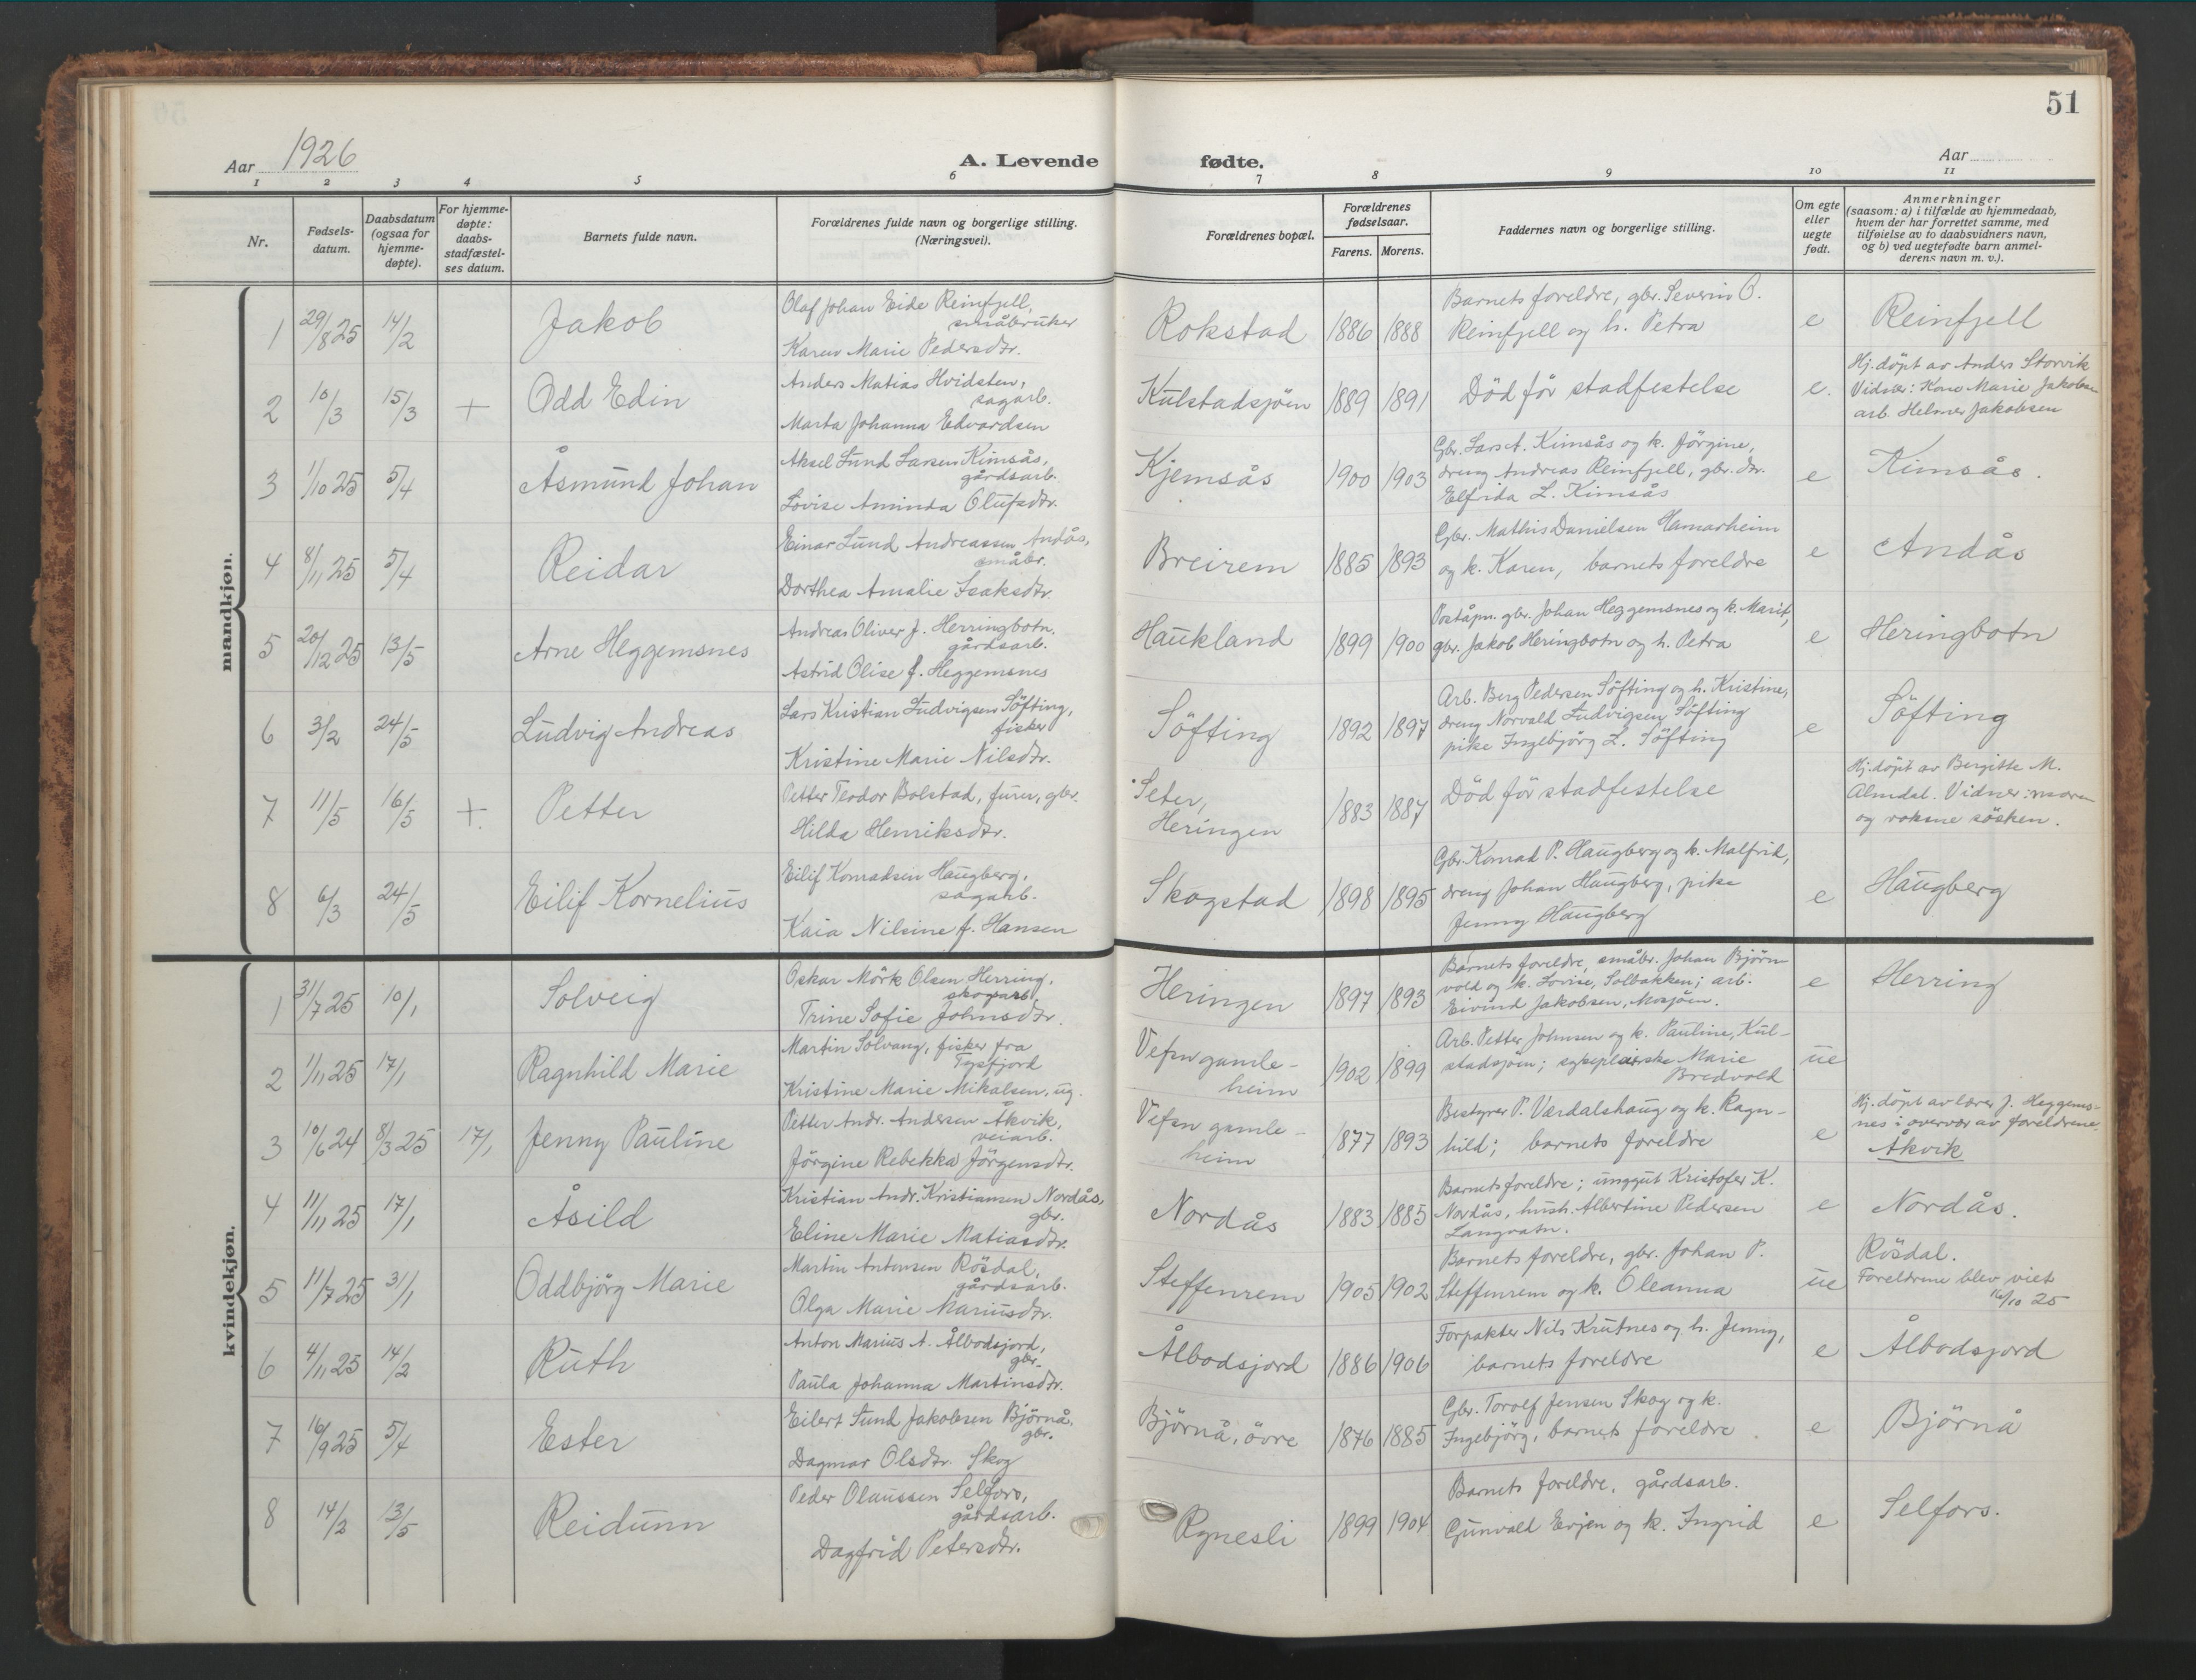 51
Aar 1926
A. Levende fødte.
Aar
1 2 3 4 5 6 7 8 9 10 11
Nr.
Fødsels-
datum.
Daabsdatum
(ogsaa for
hjemme-
døpte).
For hjemme-
døpte:
daabs-
stadfæstel-
ses datum.
Barnets fulde navn.
Forældrenes fulde navn og borgerlige stilling.
(Næringsvei).
Forældrenes bopæl.
Forældrenes
fødselsaar.
Farens. Morens.
Faddernes navn og borgerlige stilling.
Om egte
eller
uegte
født.
Anmerkninger
(saasom: a) i tilfælde av hjemmedaab,
hvem der har forrettet samme, med
tilføielse av to daabsvidners navn,
og b) ved uegtefødte barn anmel-
derens navn m. v.).
mandkjøn.
1 29/8 25 14/2 Jakob
Olaf Johan Eide Reinfjell,
småbruker
Karen Marie Pedersdtr.
Rokstad 1886 1888
Barnets foreldre, gbr. Severin O.
Reinfjell og h. Petra
e Reinfjell
2 10/3 15/3 + Odd Edin
Anders Matias Hvidsten,
sagarb.
Marta Johanna Edvardsen
Kulstadsjöen 1889 1891
Död för stadfestelse
e.
Hj.döpt av Anders Storvik
Vidner: Kone Marie Jakobsen
arb. Helmer Jakobsen
3 1/10 25 5/4 Åsmund Johan
Aksel Lund Larsen Kimsås,
gårdsarb.
Lovise Aminda Olufsdtr.
Kjemsås 1900 1903
Gbr. Lars A. Kimsås og k. Jörgine,
dreng Andreas Reinfjell, gbr. dtr.
Elfrida L. Kimsås
e Kimsås.
4 8/11 25 5/4 Reidar
Einar Lund Andreassen Andås,
småbr.
Dorthea Amalie Isaksdtr.
Breirem 1885 1893
Gbr. Mathis Danielsen Hamarheim
og k. Karen, barnets foreldre
e Andås
5 20/12 25 13/5 Arne Heggemsnes
Andreas Oliver J. Herringbotn,
gårdsarb.
Astrid Olise f. Heggemsnes
Haukland 1899 1900
Poståpn. gbr. Johan Heggemsnes og k. Marit,
gbr. Jakob Heringbotn og h. Petra
e Heringbotn
6 3/2 24/5 Ludvig Andreas
Lars Kristian Ludvigsen Söfting,
fisker
Kristine Marie Nilsdtr.
Söfting 1892 1897
Arb. Berg Pedersen Söfting og h. Kristine,
dreng Norvald Ludvigsen Söfting
pike Ingebjörg L. Söfting
e Söfting
7 11/5 16/5 + Petter
Petter Teodor Bolstad, gbr.
Hilda Henriksdtr.
Seter,
Heringen
1883 1887
Död för stadfestelse
Hj.döpt av Bergitte M.
Almdal. Vidner: moren
og voksne sösken.
8 6/3 24/5 Eilif Kornelius
Eilif Konradsen Haugberg,
sagarb.
Kaia Nilsine f. Hansen
Skogstad 1898 1895
Gbr. Konrad P. Haugberg og k. Malfrid,
dreng Johan Haugberg, pike
Jenny Haugberg
e Haugberg
kvindekjøn.
1 31/7 25 10/1 Solveig
Oskar Mörk Olsen Herring,
skogarb.
Trine Sofie Johnsdtr.
Heringen 1897 1893
Barnets foreldre, småbr. Johan Björn
vold og k. Lovise, Solbakken; arb.
Eivind Jakobsen, Mosjöen.
e Herring
2 1/11 25 17/1 Ragnhild Marie
Martin Solvang, fisker fra
Tysfjord
Kristine Marie Mikalsen, ug.
Vefsn gamle-
heim
1902 1899
Arb. Petter Johnsen og k. Pauline, Kul-
stadsjöen; sykepleierske Marie
Bredvold
ue
3 10/6 24 8/3 25 17/1 Jenny Pauline
Petter Andr. Andersen Åkvik,
veiarb.
Jörgine Rebekka Jörgensdtr.
Vefsn gamle-
heim
1877 1893
Bestyrer P. Værdalshaug og k. Ragn-
hild; barnets foreldre
e
Hj.döpt av lærer J. Heggems-
nes i overvær av foreldrene.
Åkvik
4 11/11 25 17/1 Åsild
Kristian Andr. Kristiansen Nordås,
gbr.
Eline Marie Matiasdtr.
Nordås 1883 1885
Barnets foreldre; unggut Kristofer K.
Nordås, hush. Albertine Pedersen
Langvatn.
e Nordås.
5 11/7 25 31/1 Oddbjörg Marie
Martin Antonsen Rösdal,
gårdsarb.
Olga Marie Mariusdtr.
Steffenrem 1905 1902
Barnets foreldre, gbr. Johan P.
Steffenrem og k. Oleanna
ue
Rösdal.
Foreldrene blev viet
16/10 25
6 4/11 25 14/2 Ruth
Anton Marius A. Ålbodsjord,
gbr.
Paula Johanna Martinsdtr.
Ålbodsjord 1886 1906
Forpakter Nils Krutnes og h. Jenny,
barnets foreldre
e Ålbodsjord
7 16/9 25 5/4 Ester
Eilert Sund Jakobsen Björnå,
gbr.
Dagmar Olsdtr. Skog
Björnå, övre 1876 1885
Gbr. Torolf Jensen Skog og k.
Ingebjörg, barnets foreldre.
e Björnå
8 14/2 13/5 Reidunn
Peder Olaussen Selfors,
gårdsarb.
Dagfrid Petersdtr.
Rynesli 1899 1904
Barnets foreldre, gårdsarb.
Gunvald Evjen og k. Ingrid
e Selfors.